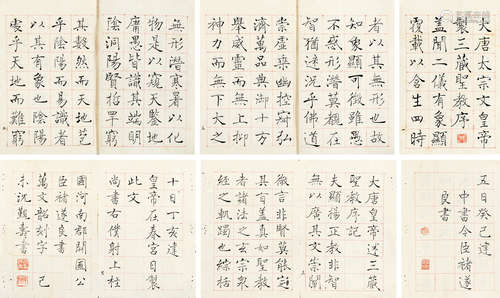 大唐太宗文皇帝
製三藏聖教序
蓋聞二儀有象顯
覆載以含生四時
無形潛寒暑以化
物是以窺天鑒地
庸愚皆識其端明
陰洞陽賢哲罕窮
其數然而天地苞
乎陰陽而易識者
以其有象也陰陽
處乎天地而難窮
者以其無形也故
知象顯可徵雖愚
不惑形潛莫覩在
智猶迷況乎佛道
崇虛乘幽控寂弘
濟萬品典御十方
舉威靈而無上抑
神力而無下大之
五日癸巳建
中書令臣褚遂
良書
大唐皇帝述三藏
聖教序記
夫顯揚正教非智
無以廣其文崇闡
微言非賢莫能定
其旨蓋真如聖教
者諸法之玄宗眾
經之軌躅也綜括
十日丁亥建
皇帝在春宮日製
此文
尚書右僕射上柱
國河南郡開國公
臣褚遂良書
萬文韶刻字 己
未沈觀壽書